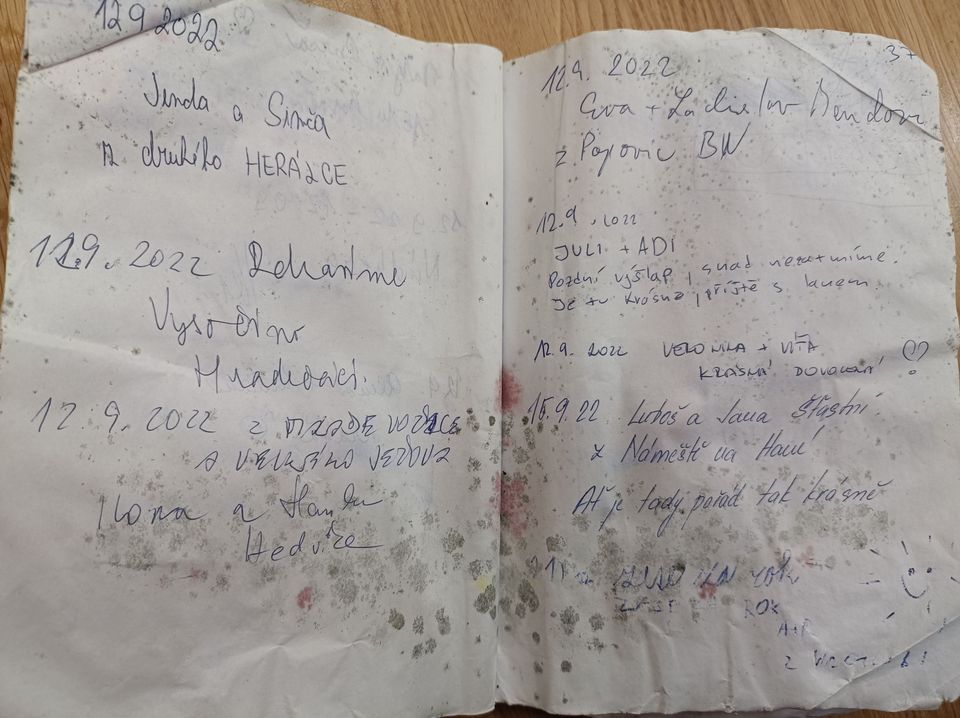 12 9 2022
Jinda a Simča
z druhého HERÁLCE
12.9. 2022 Zdravíme
Vysočinu
Hradečáci.
12. 9. 2022 z MLADÉ VOŽICE
A VELKÉHO JEŽOVA
Ilona a
37
12.9. 2022
Eva + Ladislav Bendovi
z Popovic BN
12.9. 2022
JULI + ADI
Pozdní výšlap, snad nezatmíme.
Je tu krásně, příště s lanem
12.9. 2022 VERONIKA + VÍŤA
KRÁSNÁ DOVOLENÁ
15.9.22 Luboš a Jana Šťastní
z Náměště na Hané
Ať je tady pořád tak krásně
ROK